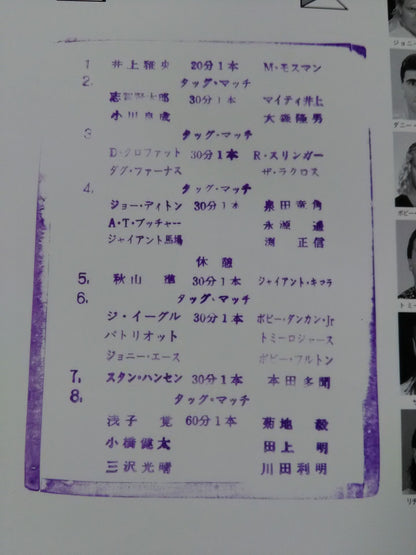 1. 井上雅央 20分1本 M・モスマン
2. タッグ・マッチ
志賀賢太郎 30分1本 マイティ井上
小川良成 大森隆男
3 タッグ・マッチ
D・クロファット 30分1本 R・スリンガー
ダグ・ファーナス ザ・ラクロス
4. タッグ・マッチ
ジョー・ディトン 30分1本 泉田竜角
A・T・ブッチャー 永源遥
ジャイアント馬場 渕正信
休憩
5. 秋山準 30分1本 ジャイアント・キマラ
6. タッグ・マッチ
ジ・イーグル 30分1本 ボビー・ダンカン・Jr
パトリオット トミーロジャース
ジョニー・エース ボビー・フルトン
7. スタン・ハンセン 30分1本 本田多聞
8. タッグ・マッチ
浅子覚 60分1本 菊地毅
小橋健太 田上明
三沢光晴 川田利明
ジョニー
ダニー
ボビー
トミー